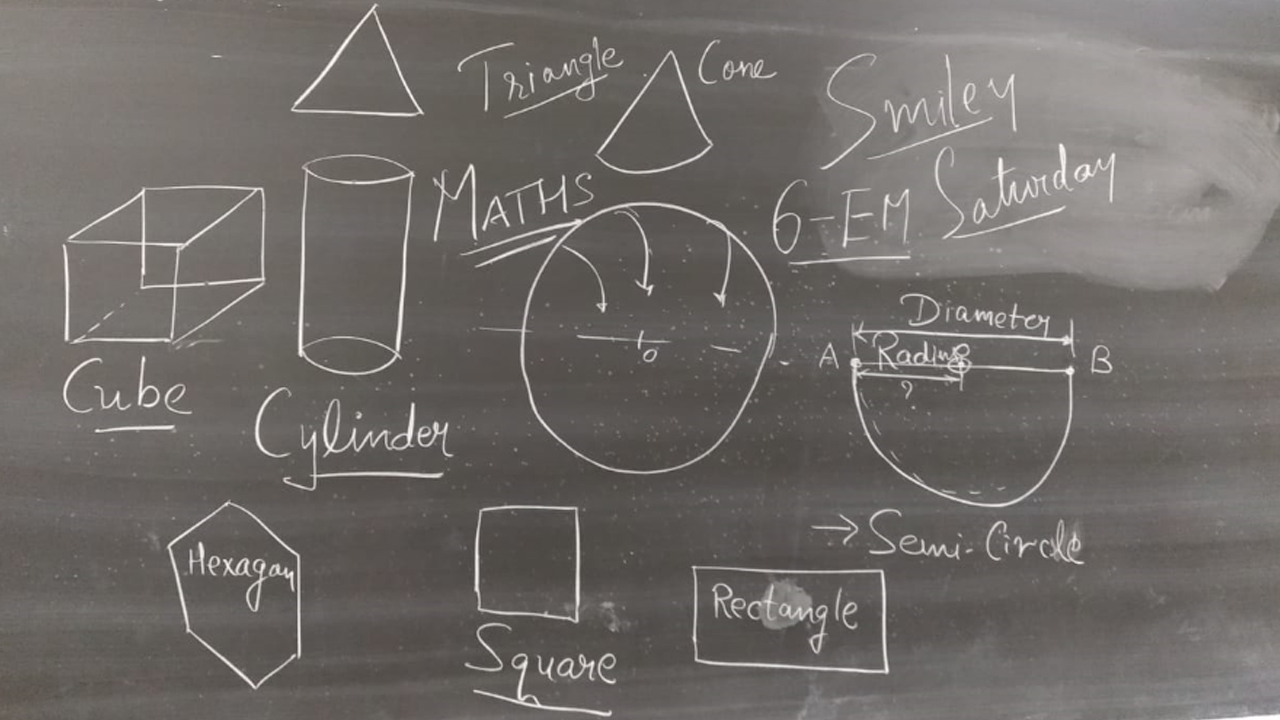 Triangle
Cone
Smiley
MATHS
6-EM Saturday
Diameter
A Radius B
?
o
Cube
Cylinder
→ Semi-Circle
Hexagan
Rectangle
Square